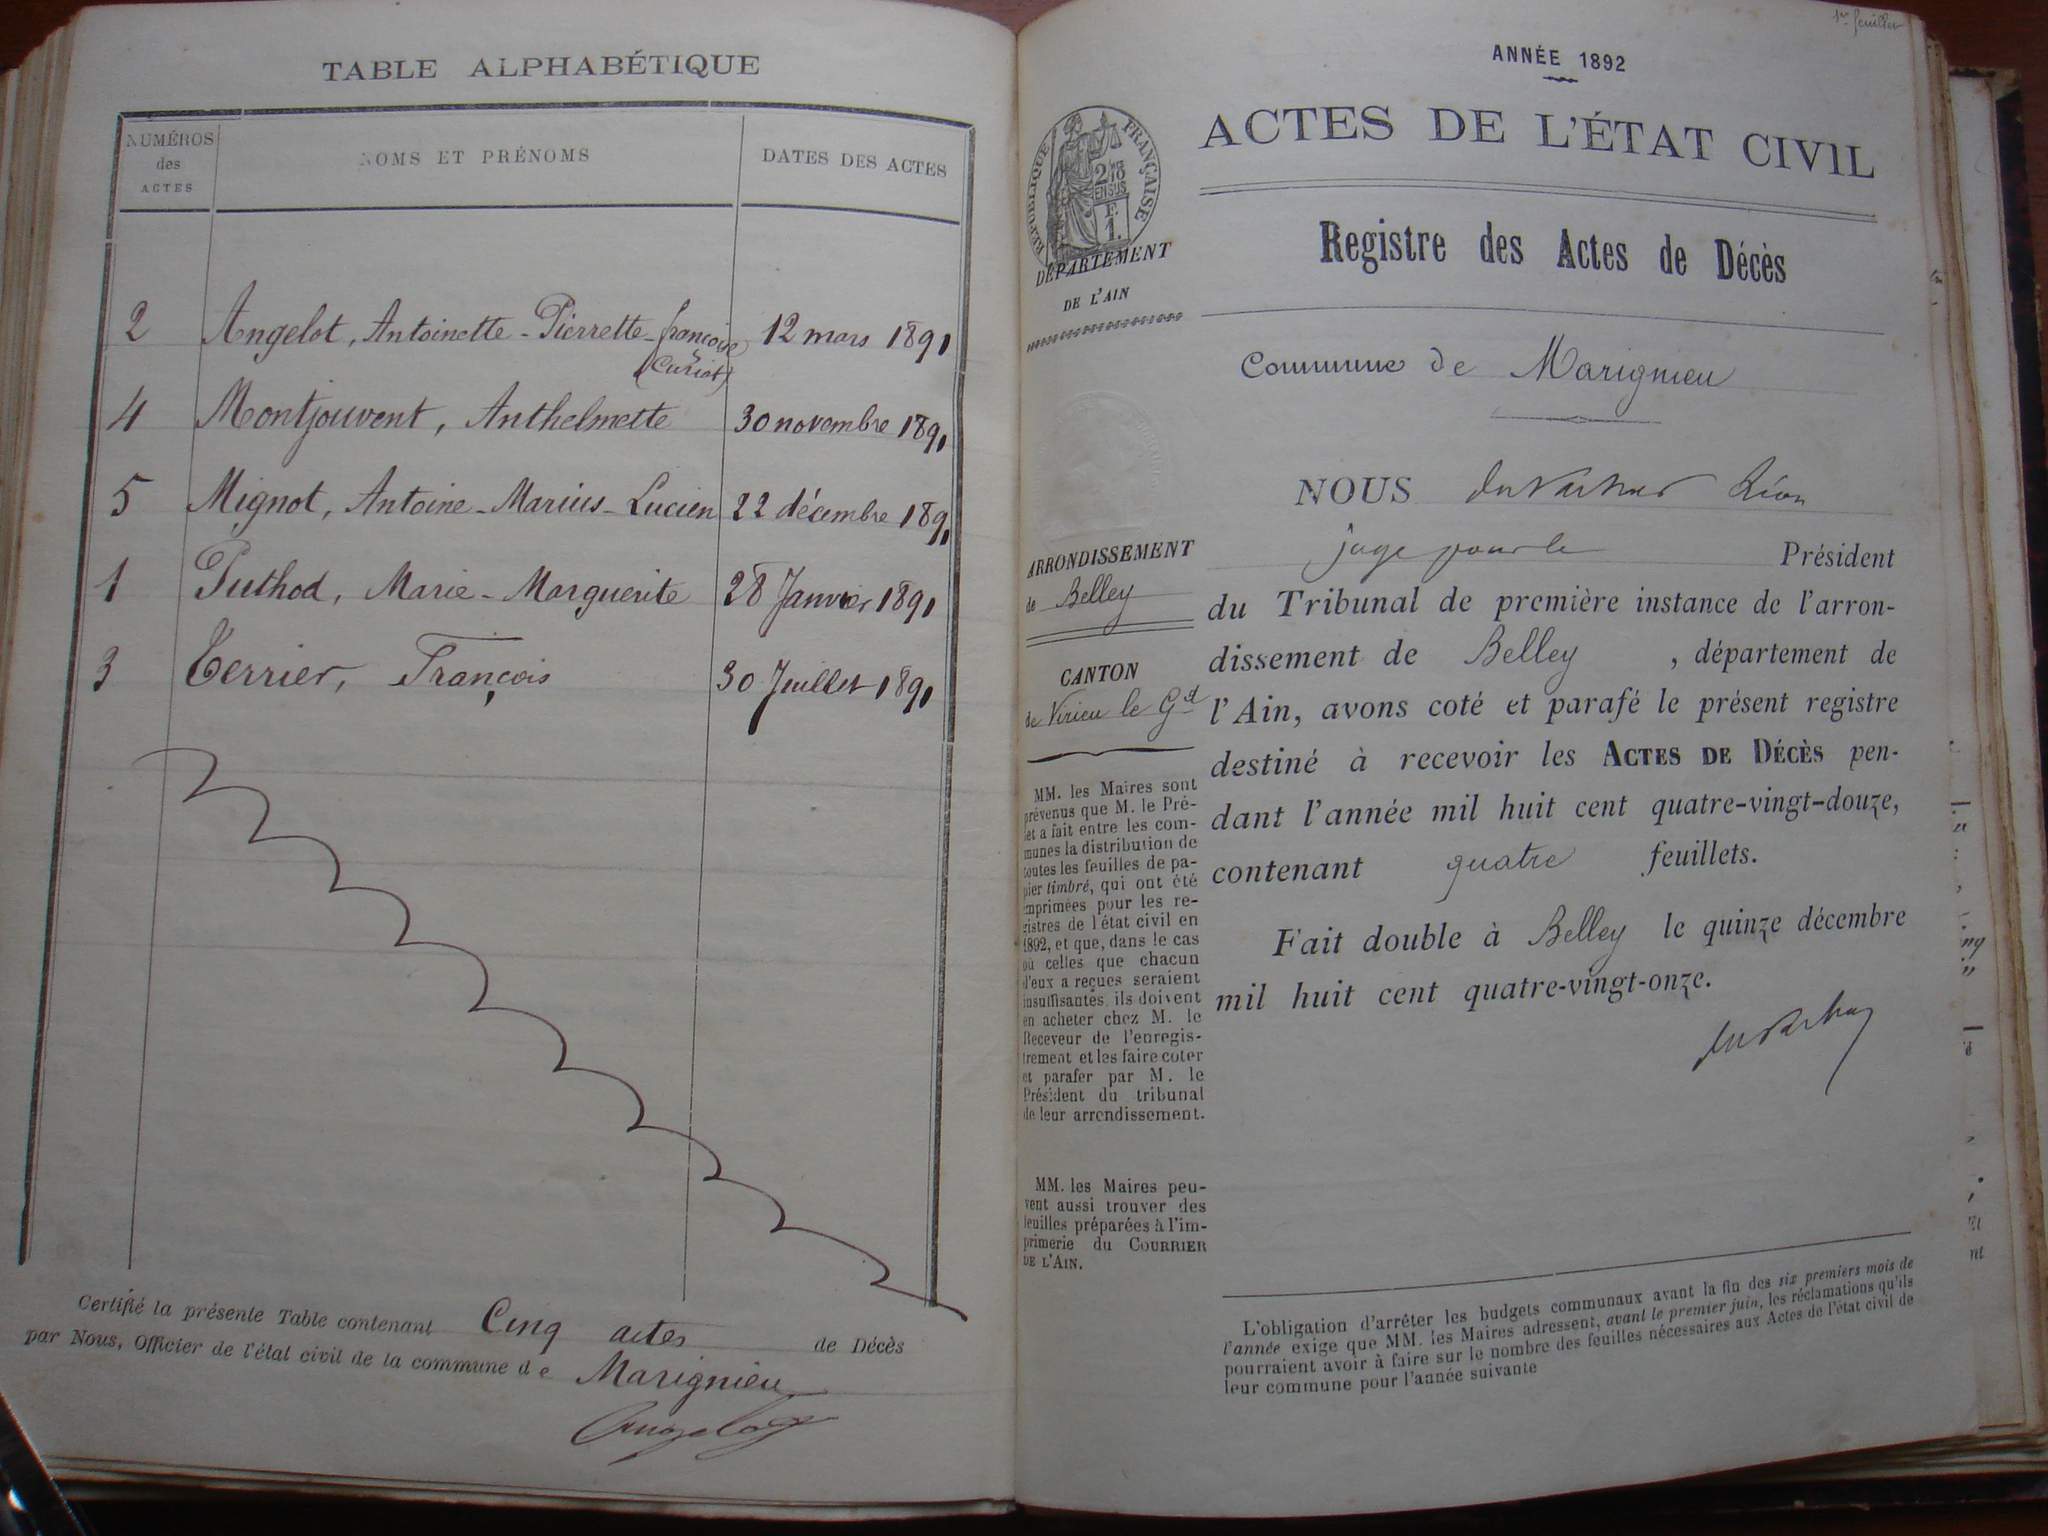 TABLE ALPHABÉTIQUE
NUMÉROS
des
ACTES
NOMS ET PRÉNOMS
DATES DES ACTES
2 Angelot, Antoinette-Pierrette-françoise 12 mars 1891
(Curiat)
4 Montjouvent, Anthelmette 30 novembre 1891
5 Mignot, Antoine-Marius-Lucien 22 décembre 1891
1 Puthod, Marie-Marguerite 28 Janvier 1891
3 Terrier, François 30 Juillet 1891
Certifié la présente Table contenant Cinq actes de Décès
par Nous, Officier de l'état civil de la commune de Marignieu
Angelot
1er feuillet
ANNÉE 1892
ACTES DE L'ÉTAT CIVIL
RÉPUBLIQUE FRANÇAISE
2/10
EN SUS
F.
1.
DÉPARTEMENT
DE L'AIN
Registre des Actes de Décès
Commune de Marignieu
NOUS Léon
juge pour le Président
du Tribunal de première instance de l'arron-
dissement de Belley, département de
l'Ain, avons coté et parafé le présent registre
destiné à recevoir les ACTES DE DÉCÈS pen-
dant l'année mil huit cent quatre-vingt-douze,
contenant quatre feuillets.
Fait double à Belley le quinze décembre
mil huit cent quatre-vingt-onze.
ARRONDISSEMENT
de Belley
CANTON
de Virieu le Gd
MM. les Maires sont
prévenus que M. le Pré-
fet a fait entre les com-
munes la distribution de
toutes les feuilles de pa-
pier timbré, qui ont été
imprimées pour les re-
gistres de l'état civil en
1892, et que, dans le cas
où celles que chacun
d'eux a reçues seraient
insuffisantes, ils doivent
en acheter chez M. le
Receveur de l'enregis-
trement et les faire coter
et parafer par M. le
Président du tribunal
de leur arrondissement.
MM. les Maires peu-
vent aussi trouver des
feuilles préparées à l'im-
primerie du COURRIER
DE L'AIN.
L'obligation d'arrêter les budgets communaux avant la fin des six premiers mois de
l'année exige que MM. les Maires adressent, avant le premier juin, les réclamations qu'ils
pourraient avoir à faire sur le nombre des feuilles nécessaires aux Actes de l'état civil de
leur commune pour l'année suivante